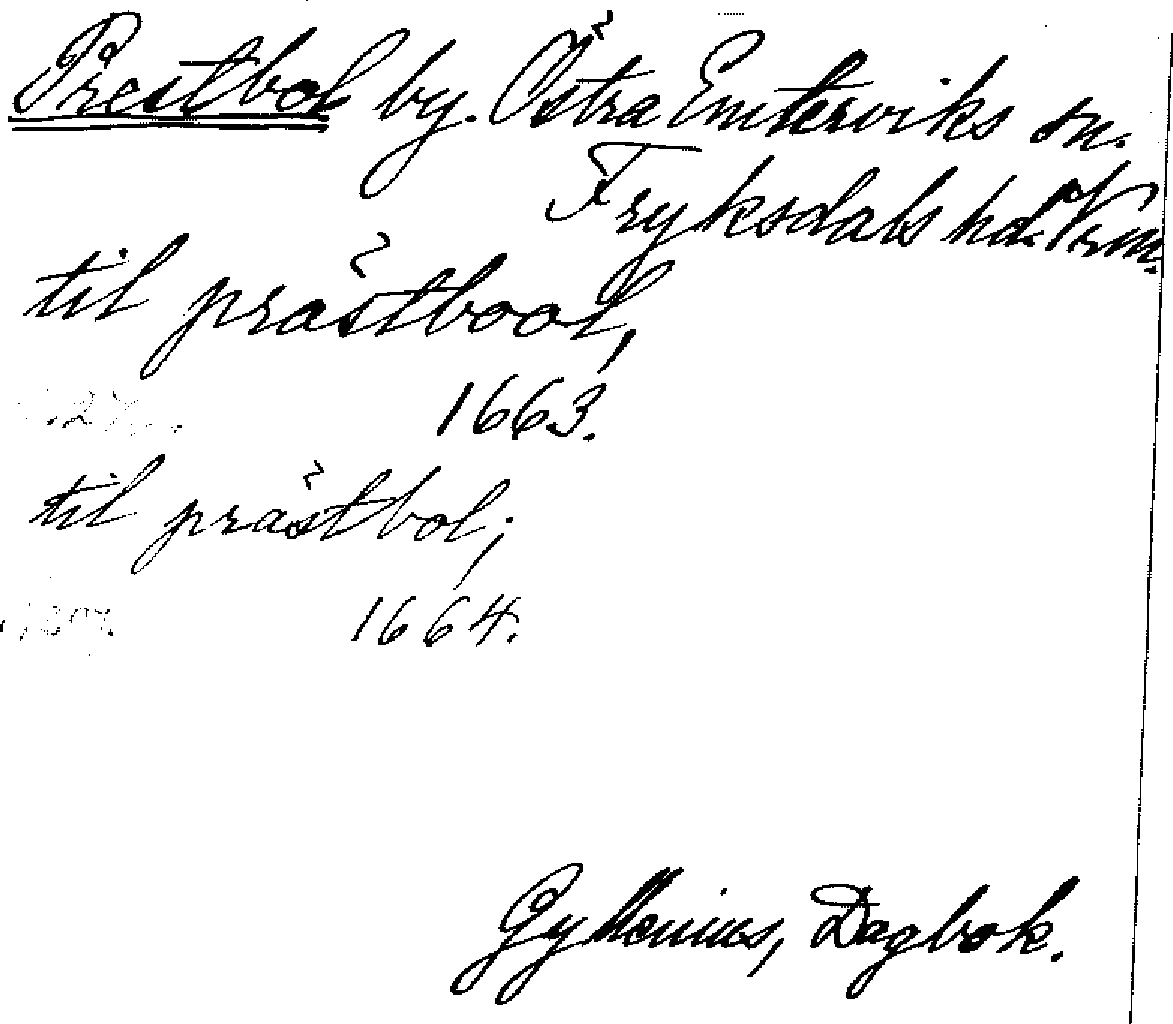 Prestbol by. Östra Emterviks sn.
Fryksdals hd. Vrm.
til prästbool,
1663.
til prästbol;
1664.
Gyllenius, Dagbok.